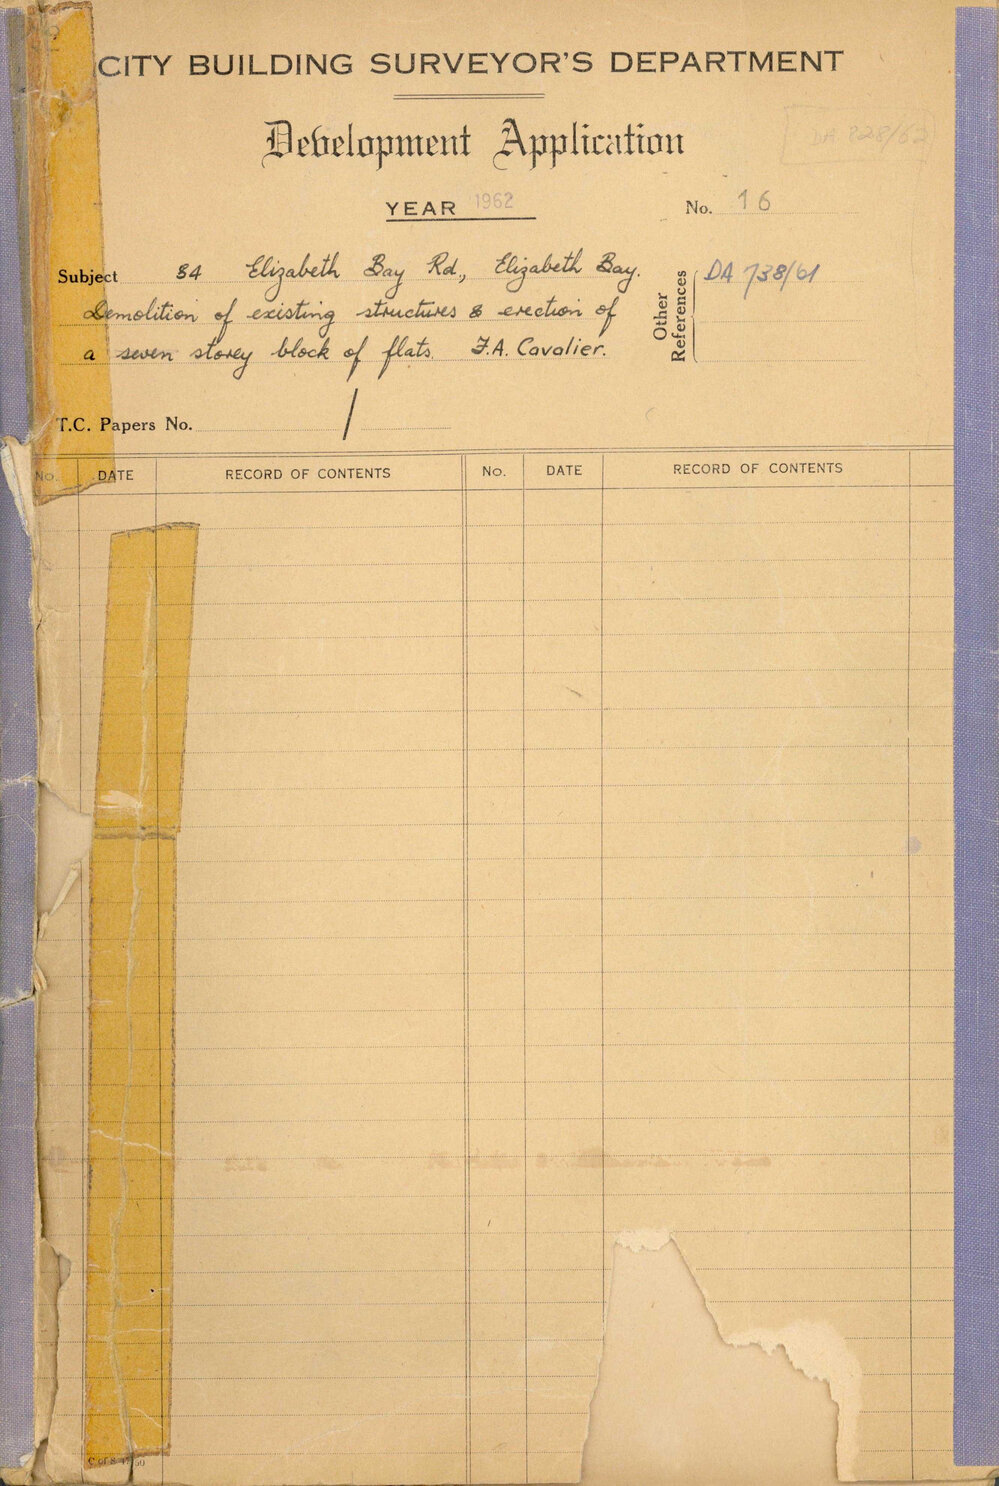 CITY BUILDING SURVEYOR'S DEPARTMENT
Development Application
DA 228/62
YEAR 1962
No. 16
Subject 34 Elizabeth Bay Rd., Elizabeth Bay.
Demolition of existing structures & erection of
a seven storey block of flats. F.A. Cavalier.
Other References
DA 738/61
T.C. Papers No. /
No. DATE RECORD OF CONTENTS No. DATE RECORD OF CONTENTS
C of S